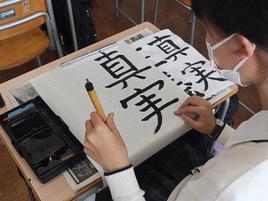 真実
真実